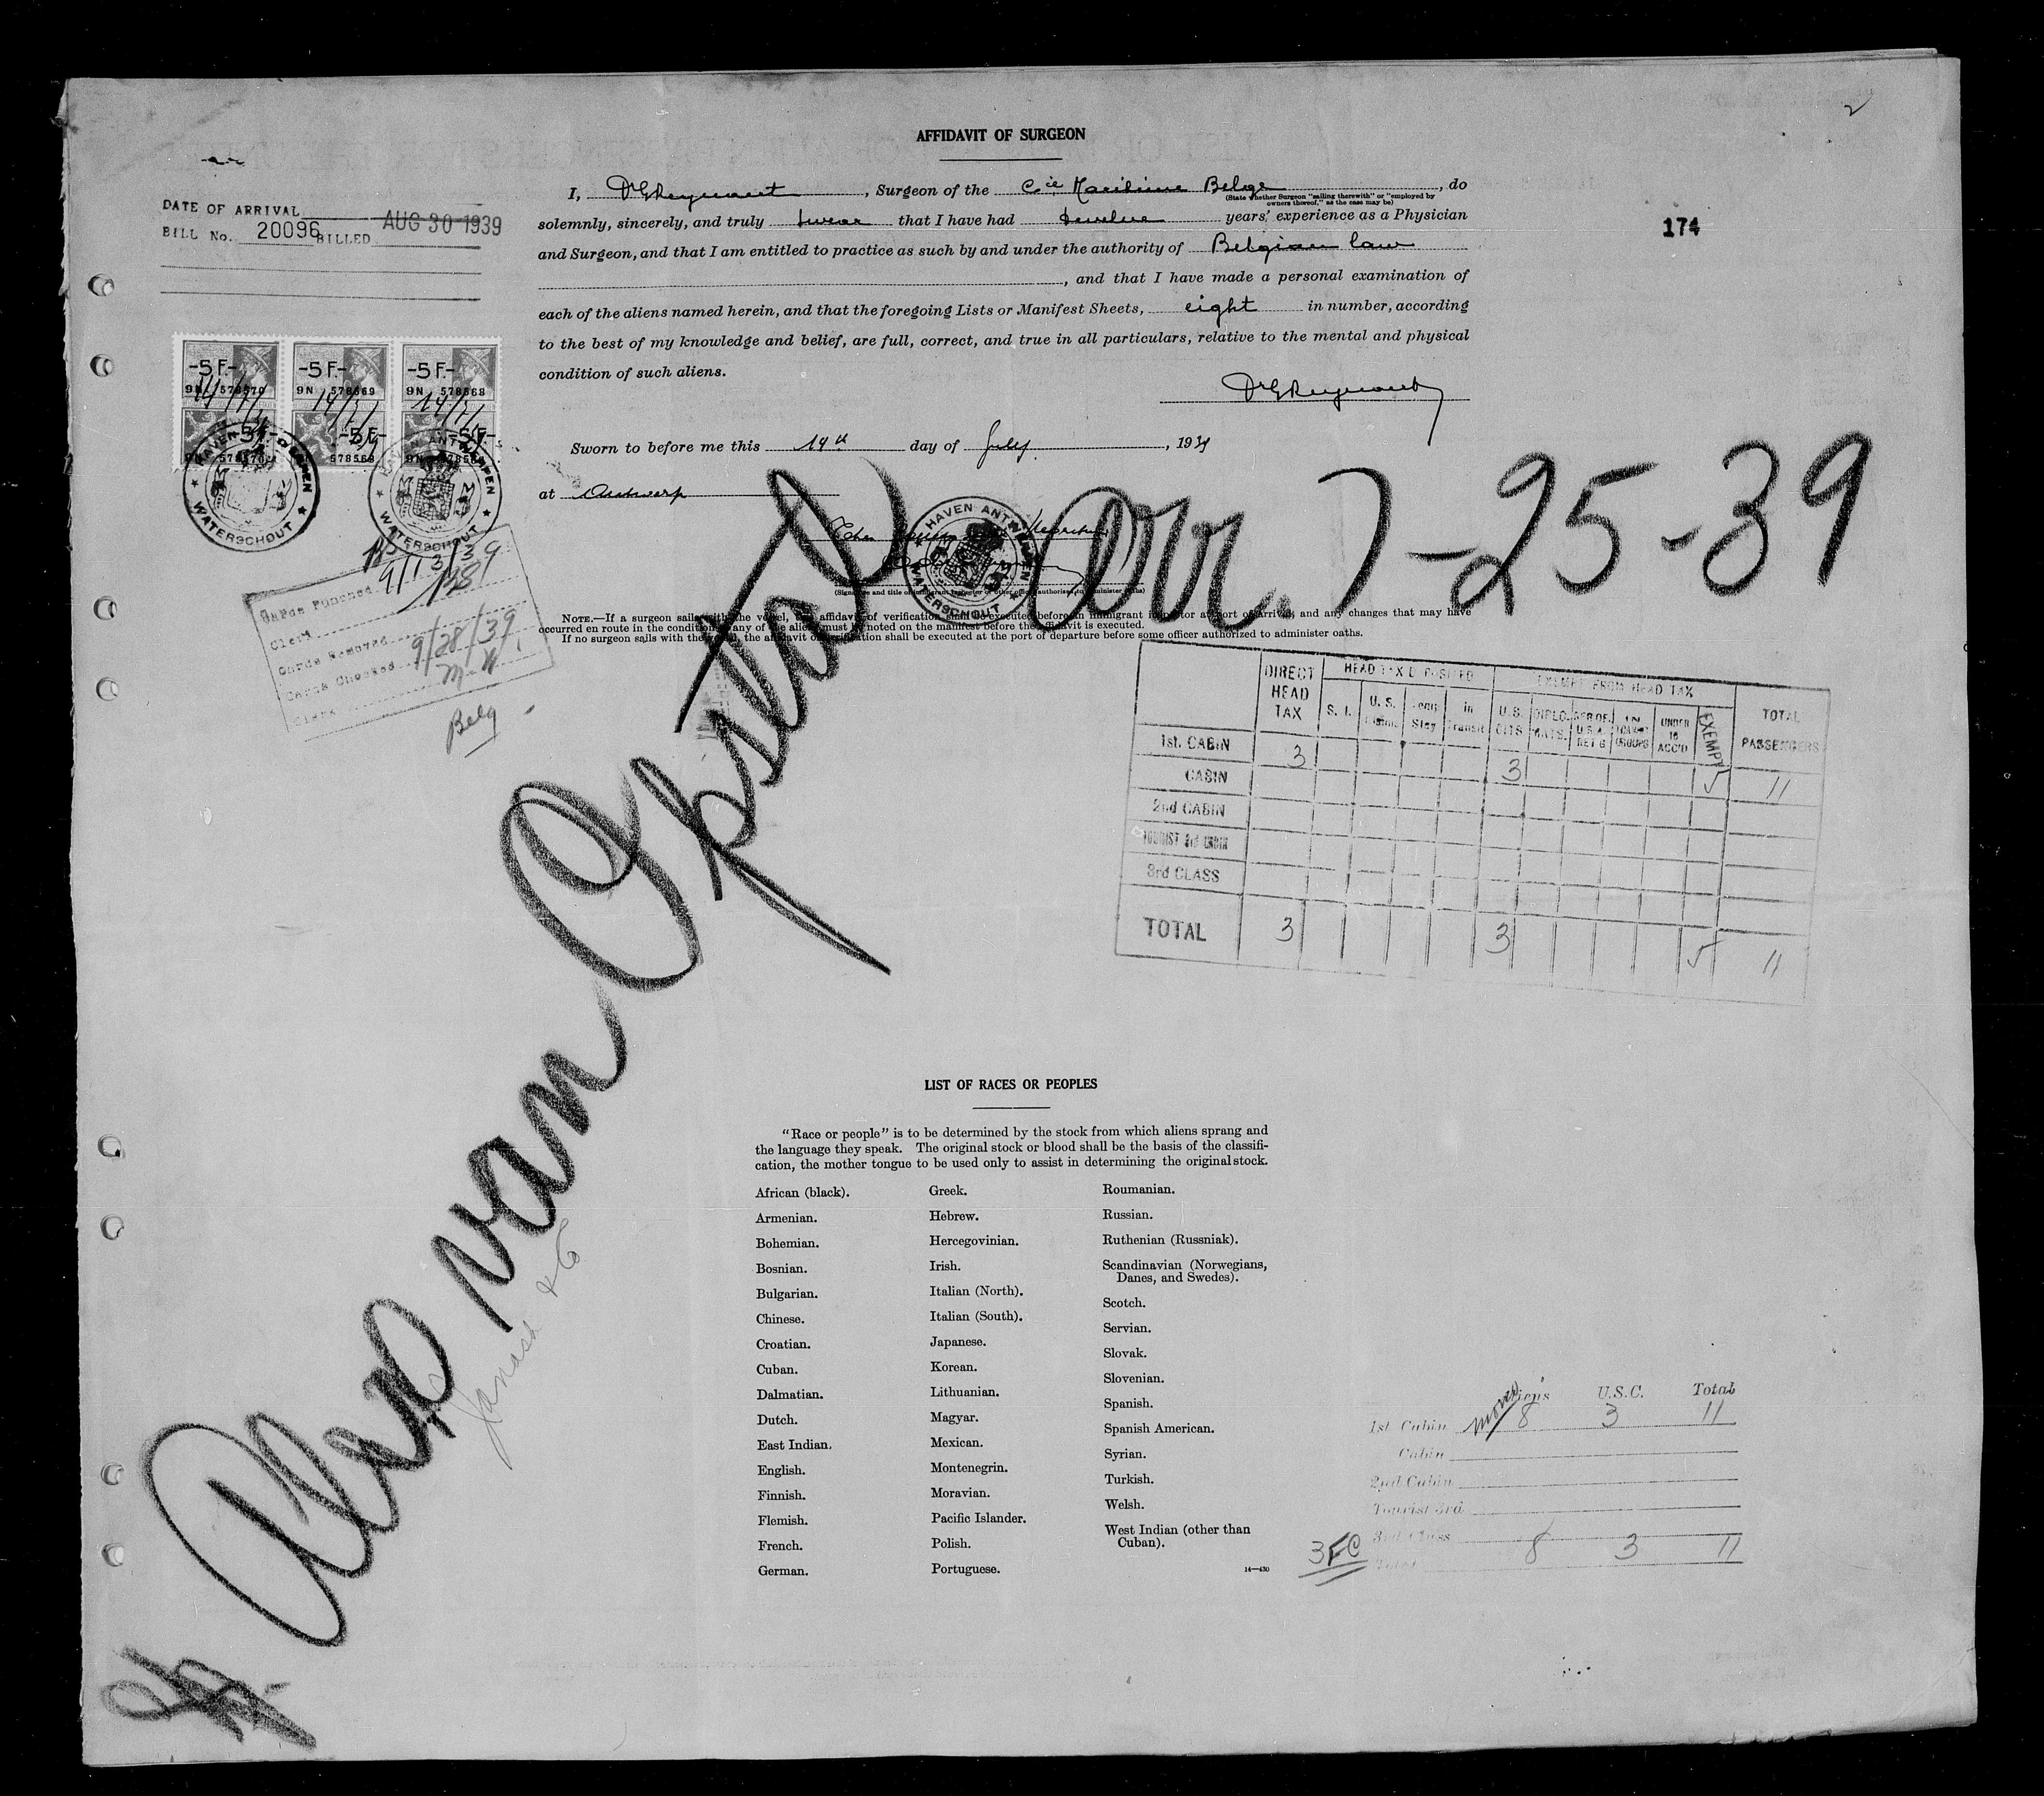 2
AFFIDAVIT OF SURGEON
I, Dr G Reymaert, Surgeon of the Cie Maritime Belge, do
(State whether Surgeon "sailing therewith" or "employed by
owners thereof," as the case may be)
solemnly, sincerely, and truly swear that I have had twelve years' experience as a Physician
and Surgeon, and that I am entitled to practice as such by and under the authority of Belgian law
, and that I have made a personal examination of
each of the aliens named herein, and that the foregoing Lists or Manifest Sheets, eight in number, according
to the best of my knowledge and belief, are full, correct, and true in all particulars, relative to the mental and physical
condition of such aliens.
Sworn to before me this 14th day of July, 1939
at Antwerp
(Signature and title of immigrant inspector or other officer authorized to administer oaths)
NOTE.—If a surgeon sails with the vessel, the affidavit of verification shall be executed before an immigrant inspector at port of arrival; and any changes that may have
occurred en route in the condition of any of the aliens must be noted on the manifest before the affidavit is executed.
If no surgeon sails with the vessel, the affidavit of verification shall be executed at the port of departure before some officer authorized to administer oaths.
DATE OF ARRIVAL
BILL No. 20096 BILLED AUG 30 1939
174
-5 F.- -5 F.- -5 F.-
9N 578570 9N 578569 9N 578568
14/7/39 14/7/39 14/7/39
-5 F.- -5 F.- -5 F.-
HAVEN ANTWERPEN
WATERSCHOUT
HAVEN ANTWERPEN
WATERSCHOUT
HAVEN ANTWERPEN
WATERSCHOUT
Cards Punched 9/13/39
Clerk 138
Cards Removed
Cards Checked 9/28/39
Clerk M-H
Belg -
Arr. 7-25-39
Alex van Opstal
DIRECT HEAD TAX
HEAD TAX DEPOSITED
EXEMPT FROM HEAD TAX
TOTAL PASSENGERS
S. I. U. S. Claims Temp Stay In Transit U.S. CITS DIPLOMATS UNDER 16 ACC'D EXEMPT
1st. CABIN 3 3 5 11
CABIN
2nd CABIN
TOURIST 3rd CABIN
3rd CLASS
TOTAL 3 3 5 11
LIST OF RACES OR PEOPLES
"Race or people" is to be determined by the stock from which aliens sprang and
the language they speak. The original stock or blood shall be the basis of the classifi-
cation, the mother tongue to be used only to assist in determining the original stock.
African (black).
Armenian.
Bohemian.
Bosnian.
Bulgarian.
Chinese.
Croatian.
Cuban.
Dalmatian.
Dutch.
East Indian.
English.
Finnish.
Flemish.
French.
German.
Greek.
Hebrew.
Hercegovinian.
Irish.
Italian (North).
Italian (South).
Japanese.
Korean.
Lithuanian.
Magyar.
Mexican.
Montenegrin.
Moravian.
Pacific Islander.
Polish.
Portuguese.
Roumanian.
Russian.
Ruthenian (Russniak).
Scandinavian (Norwegians,
Danes, and Swedes).
Scotch.
Servian.
Slovak.
Slovenian.
Spanish.
Spanish American.
Syrian.
Turkish.
Welsh.
West Indian (other than
Cuban).
14—430
Aliens U.S.C. Total
1st Cabin 8 3 11
Cabin
2nd Cabin
Tourist 3rd
3rd Class
Total 8 3 11
3FC